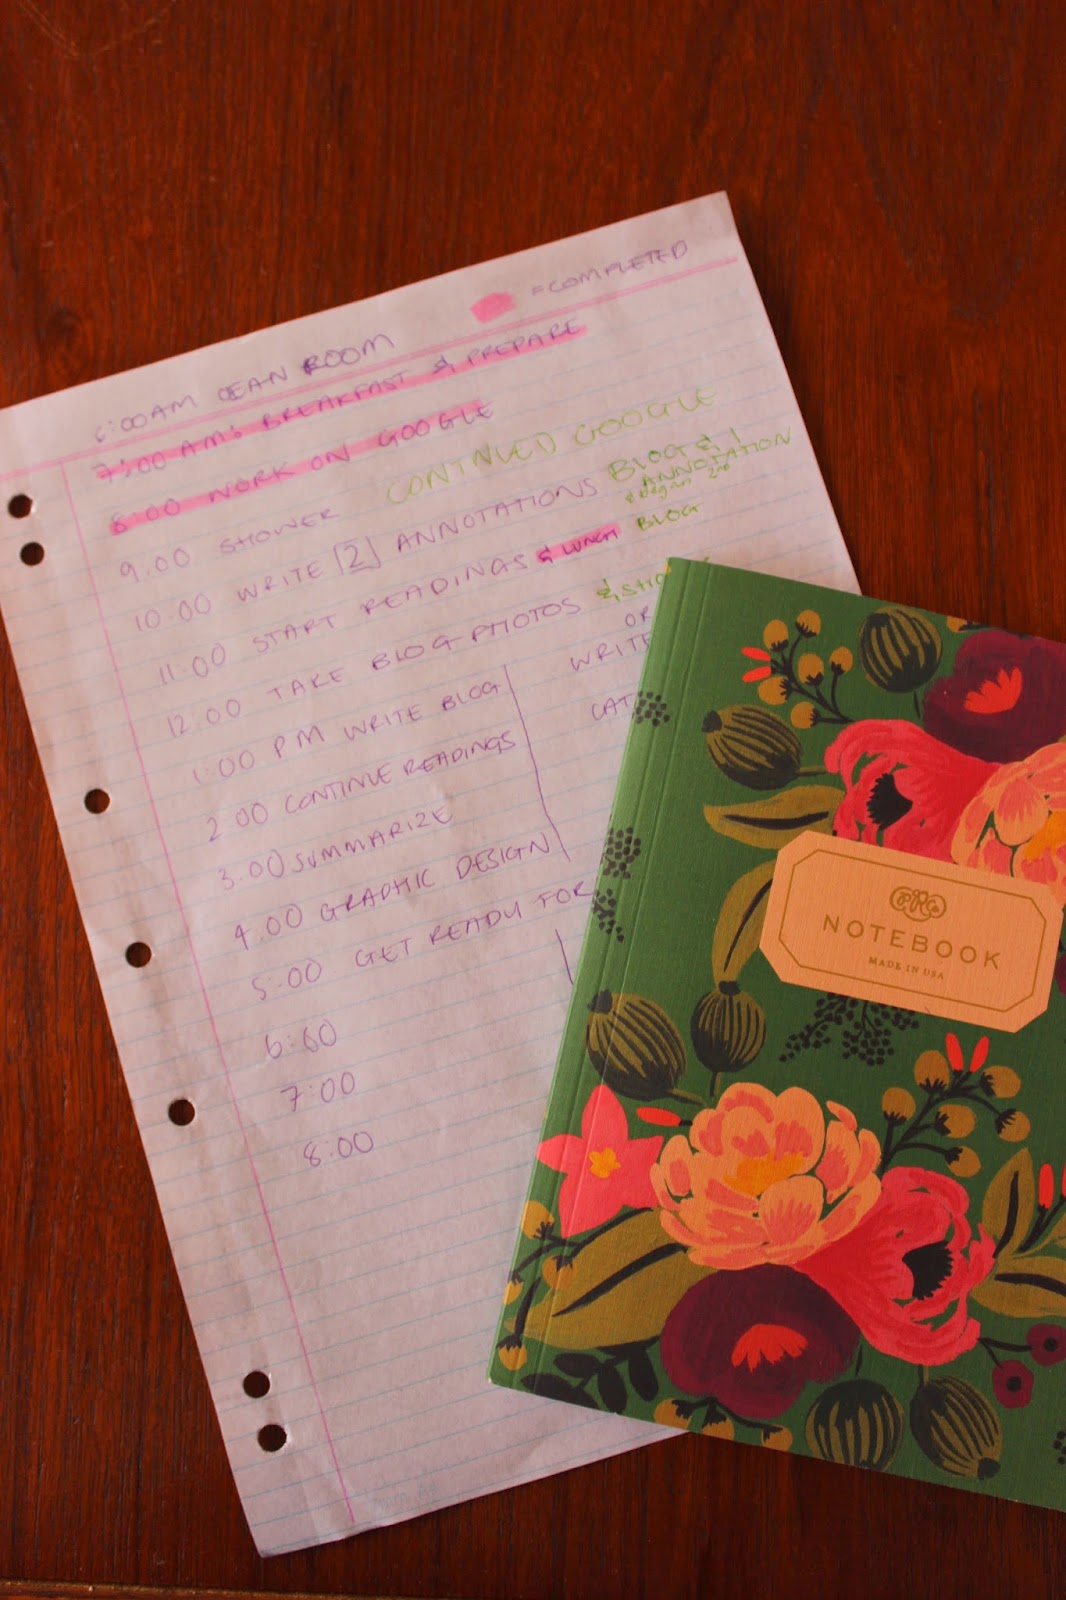 =COMPLETED
6:00AM CLEAN ROOM
7:00 AM: BREAKFAST & PREPARE
8:00 WORK ON GOOGLE
9:00 SHOWER CONTINUED GOOGLE
10:00 WRITE [2] ANNOTATIONS BLOG & 1 ANNOTATION
& began 2nd
11:00 START READINGS & LUNCH BLOG
12:00 TAKE BLOG PHOTOS &
OR
1:00 PM WRITE BLOG WRITE
2:00 CONTINUE READINGS CAT
3:00 SUMMARIZE
4:00 GRAPHIC DESIGN
5:00 GET READY FOR
6:00
7:00
8:00
NOTEBOOK
MADE IN USA